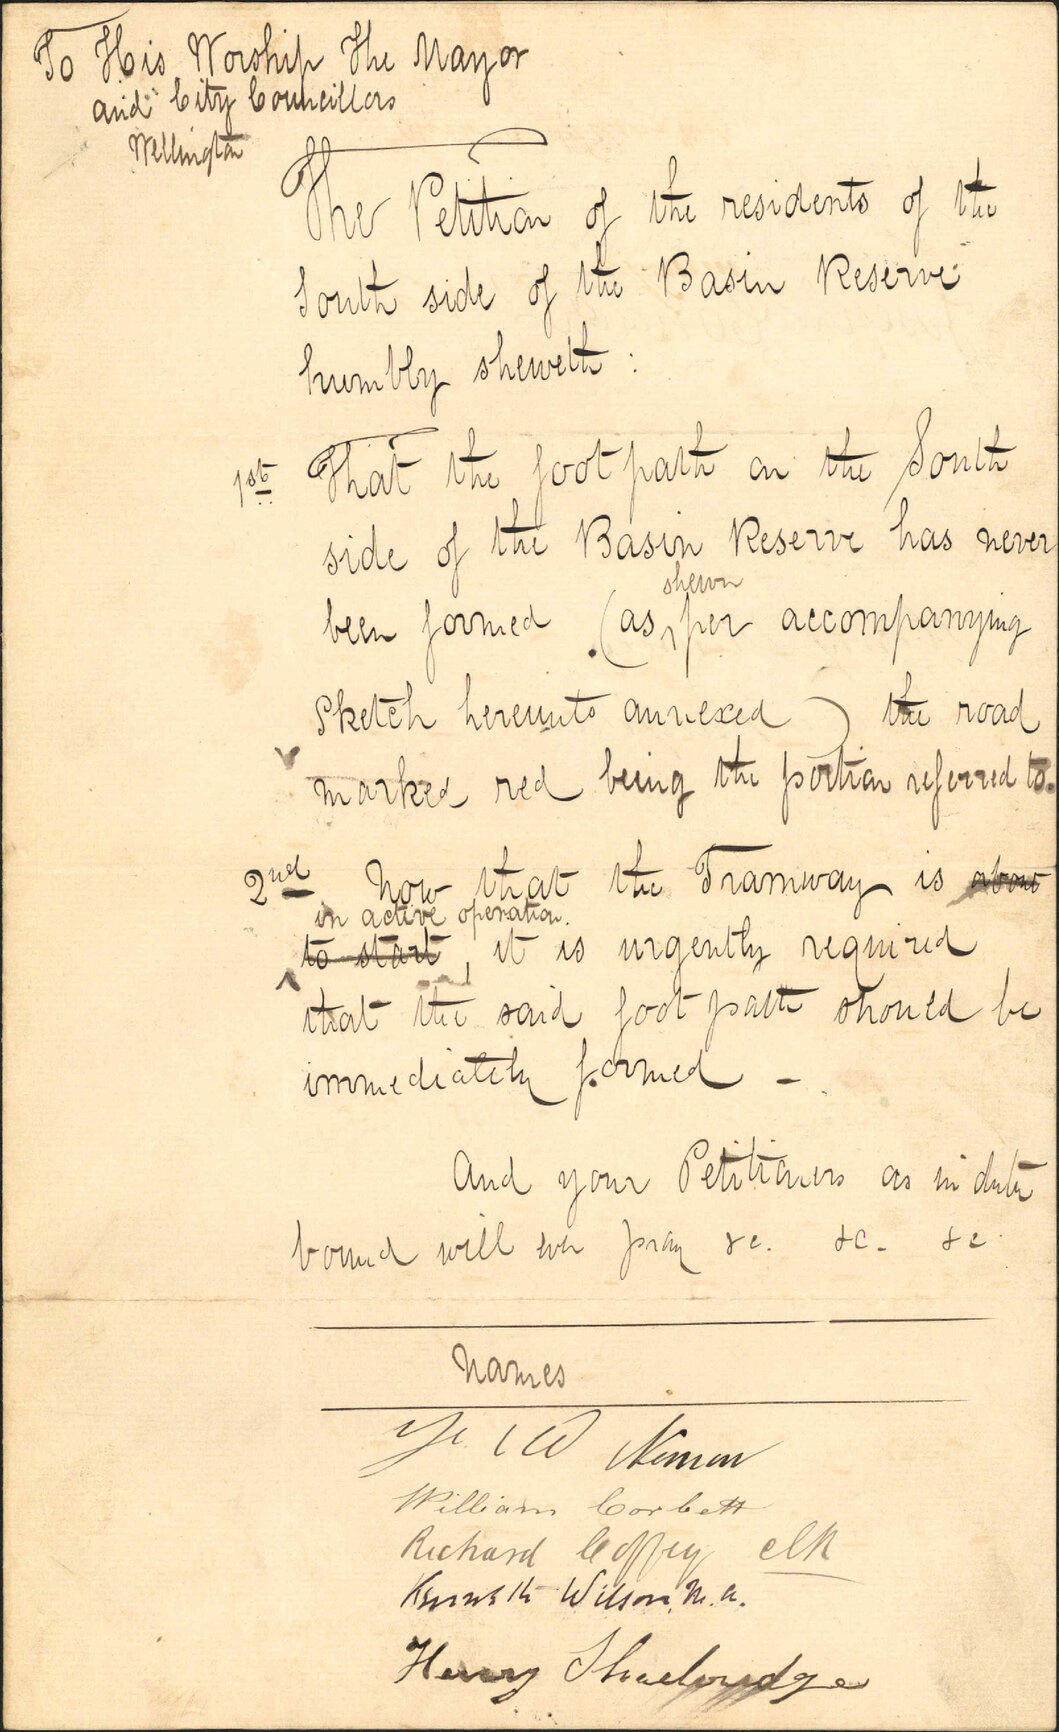 To His Worship The Mayor
and City Councillors
Wellington
The Petition of the residents of the
South side of the Basin Reserve
humbly sheweth :
1st That the footpath on the South
side of the Basin Reserve has never
shewn
been formed (as ^ per accompanying
Sketch hereunto annexed) the road
marked red being the portion referred to.
2nd Now that the Tramway is about
in active operation.
to start, it is urgently required
that the said footpath should be
immediately formed -
And your Petitioners as in duty
bound will ever pray &c. &c. &c.
Names
William Corbett
Richard Coffey clk
Kenneth Wilson, M.A.
Henry